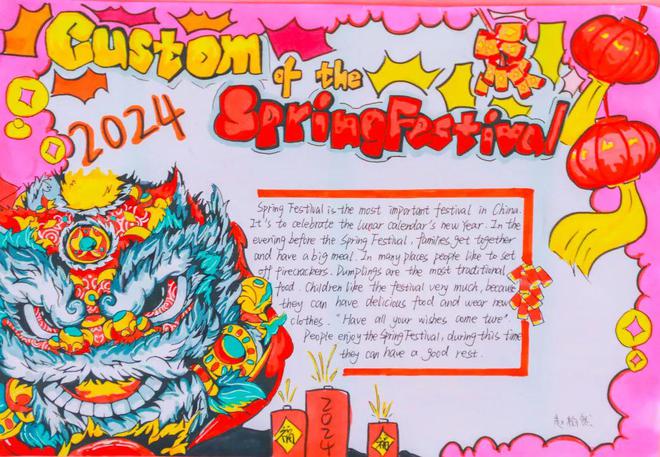 Custom
of the
Spring Festival
2024
Spring Festival is the most important festival in China.
It's to celebrate the lunar calendar's new year. In the
evening before the Spring Festival, families get together
and have a big meal. In many places people like to set
off firecrackers. Dumplings are the most traditional
food. Children like the festival very much, because
they can have delicious food and wear new
clothes. "Have all your wishes come ture"
People enjoy the Spring Festival, during this time
they can have a good rest.
2024